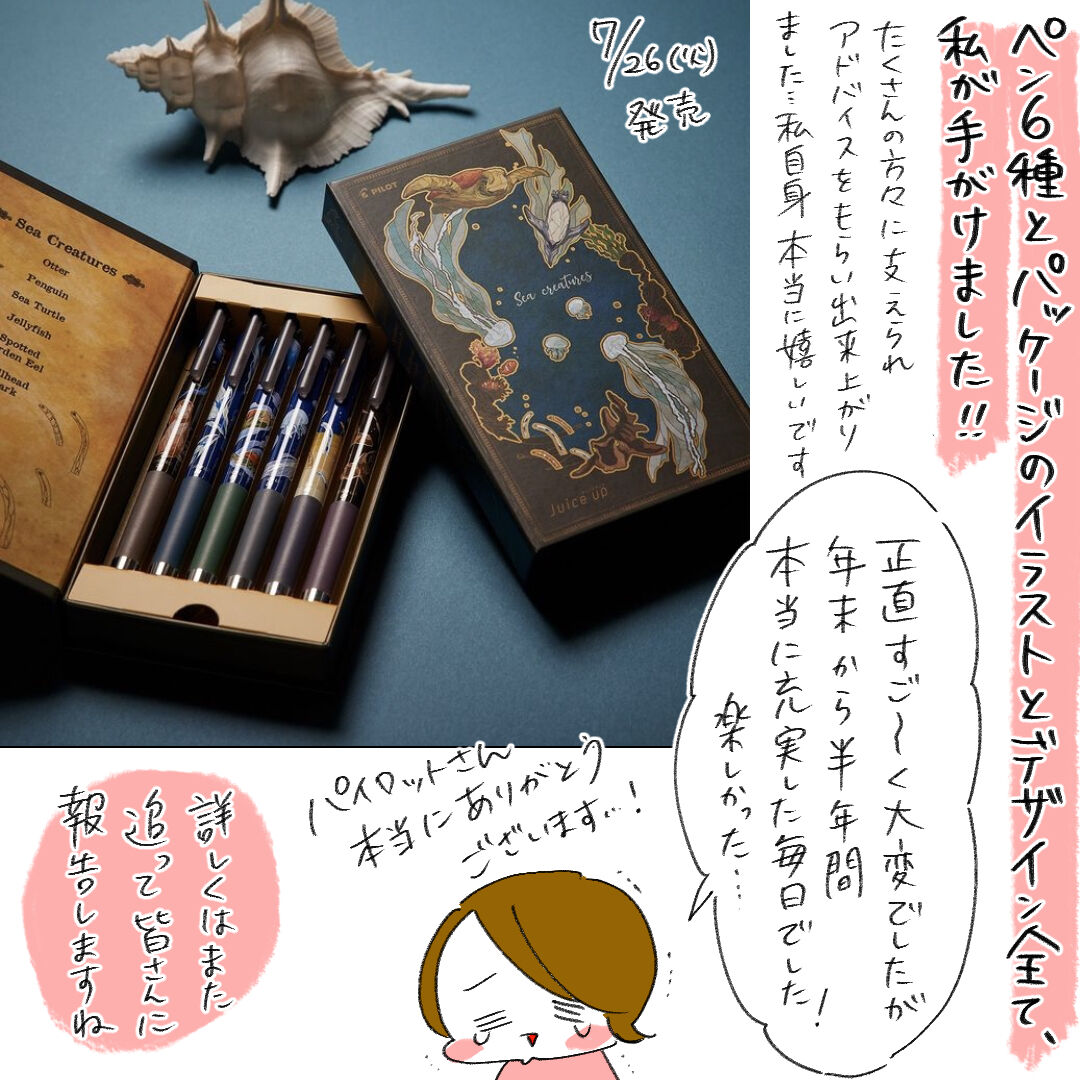 ペン6種とパッケージのイラストとデザイン全て、
私が手がけました!!
たくさんの方々に支えられ
アドバイスをもらい出来上がり
ました…私自身 本当に嬉しいです
7/26(火)
発売
PILOT
Sea creatures
Juice up
Sea Creatures
Otter
Penguin
Sea Turtle
Jellyfish
Spotted
rden Eel
lhead
ark
正直すご〜く大変でしたが
年末から半年間
本当に充実した毎日でした!
楽しかった…
パイロットさん
本当にありがとう
ございます…!
詳しくはまた
追って皆さんに
報告しますね